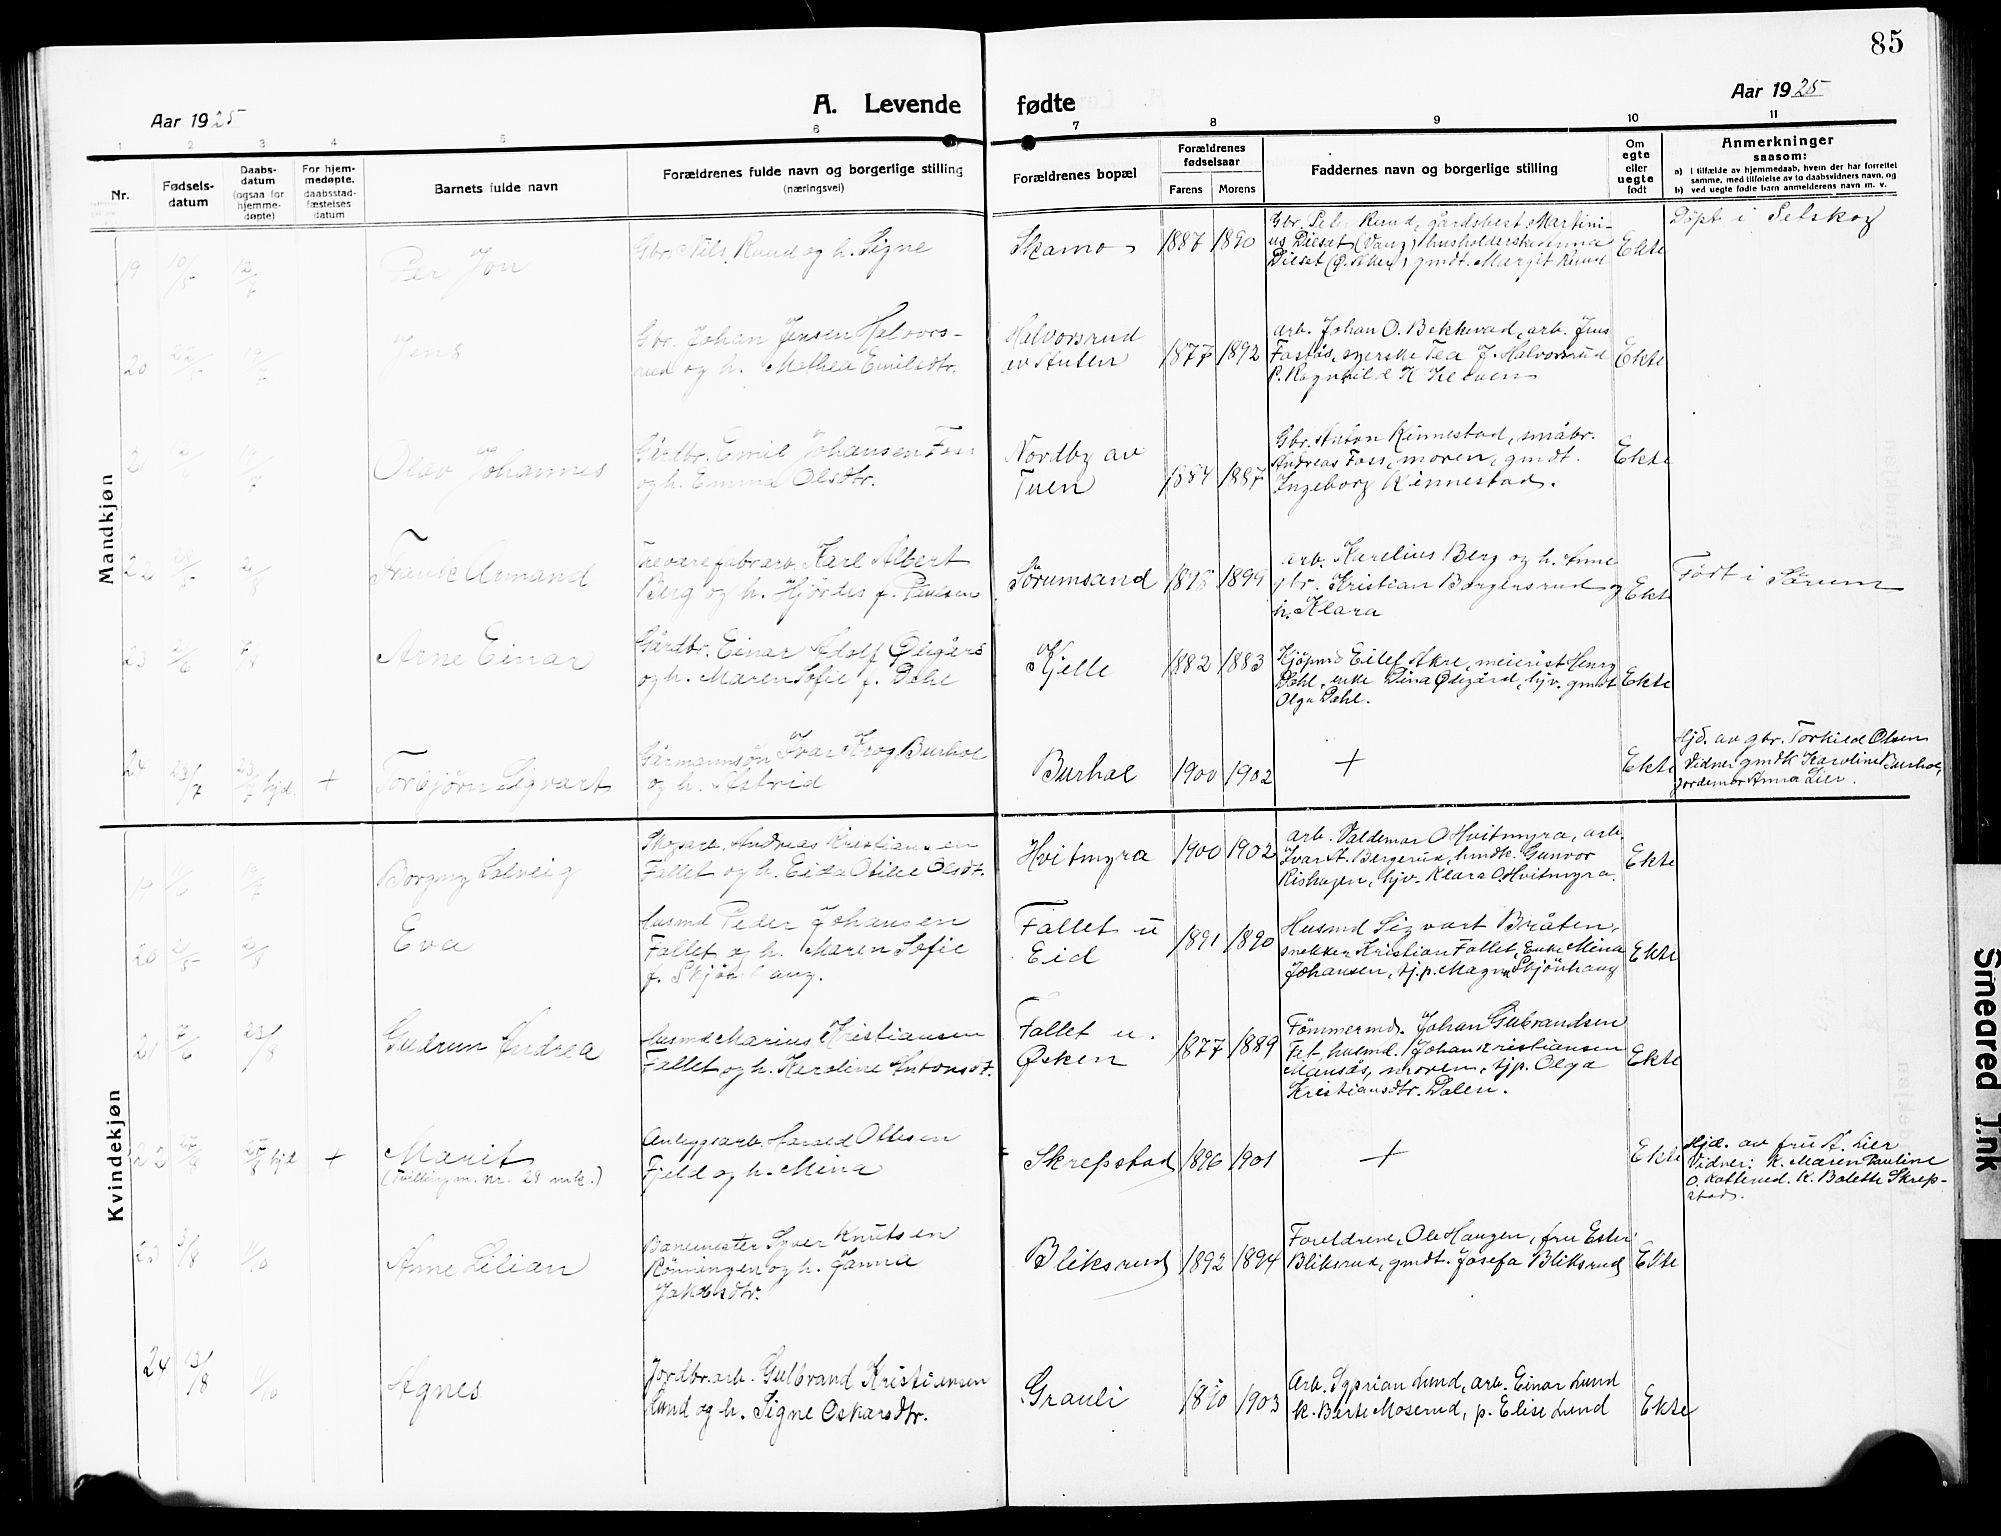 85
Aar 1925
A. Levende fødte
Aar 1925
1 2 3 4 5 6 7 8 9 10 11
Nr.
Fødsels-
datum
Daabs-
datum
(ogsaa for
hjemme-
døpte)
For hjem-
medøpte.
daabsstad-
fæstelses
datum
Barnets fulde navn
Forældrenes fulde navn og borgerlige stilling
(næringsvei)
Forældrenes bopæl
Forældrenes
fødselsaar
Farens Morens
Faddernes navn og borgerlige stilling
Om
egte
eller
uegte
født
Anmerkninger
saasom:
a) i tilfælde av hjemmedaab, hvem der har forrettet
samme, med tilføielse av to daabsvidners navn, og
b) ved uegte fødte barn anmelderens navn m. v.
Mandkjøn
19 10/5 12/7
Per Jon
Gbr. Nils Ruud og h. Signe
Skamo
1887 1890
Gbr. Ruud, gardsbest. Martini-
us Dilsat (Vang) husholderske Anna
Dilsat (Ø. Aker) gmdt. Margit Ruud
Ekte
Døpt i Setskog
20 19/7
Jens
Gbr. Johan Jensen Halvors-
rud og h. Mathea Emilsdtr.
Halvorsrud
av
1877 1892
arb. Johan O. Bekkevad, arb. Jens
Fosås, syerske Tea J. Halvorsrud
p. Ragnhild H.
Ekte
Olav Johannes
Gårdbr. Emil Johansen Foss
og h. Emma Olsdtr.
Nordby av
Tuen
1884 1887
Gbr. Anton Kinnestad, småbr.
Andreas Foss, moren, gmdt.
Ingeborg Kinnestad.
Ekte
22 28/5 2/8
Frank Armand
Trevarefabr.arb. Karl Albert
Berg og h. Hjördis f. Paulsen
Sörumsand
1898 1899
arb. Karelius Berg og h. Anne
gbr. Kristian Borgersrud og
h. Klara
Ekte
Født i Sörum
23 2/6 7/8
Arne Einar
Gårdbr. Einar Adolf Ødegård
og h. Maren Sofie f. Dehl
Kjelle
1882 1883
Kjöpmd Eilef Akre, meierist Henry
Dehl, enke Dina Ødegård, hjv. gmdt
Olga Dehl.
Ekte
24 23/7 23/7 hjd. +
Torbjørn Sigvart
Gårmannsøn Ivar Krog Burhol
og h. Astrid
Burhol
1900 1902
+
Ekte
Hjd. av gbr. Torkild Olsen
Vidner gmdk Karoline Burhol,
jordemor Anna Lier.
Kvindekjøn
19
Borgny Solveig
Skogsarb. Andreas Kristiansen
Fallet og h. Eida Otilie Olsdt.
Hvitmyra
1900 1902
arb. Valdemar O Hvitmyra, arb.
Ivar A. Bergerud, hmdk. Gunvor
Rishagen, hjv. Klara O. Hvitmyra.
Ekte
20 2/5 2/8
Eva
Husmd Peder Johansen
Fallet og h. Maren Sofie
f. Skjönhaug.
Fallet u
Eid
1891 1890
Husmd Sigvart Bråten,
snekker Kristian Fallet, Enke Mina
Johansen, tj.p. Magna Skjönhaug
Ekte
21 7/6 23/8
Gudrun Andrea
Husmd Marius Kristiansen
Fallet og h. Karoline Antonsdt.
Fallet u.
Øsken
1877 1889
Tömmermd. Johan Gulbrandsen
Fet, husmd. Johan Kristiansen
Mansås, moren, tjp. Olga
Kristiansdtr. Dalen.
Ekte
22 25/8 25/8 hjd +
Marit
(Tvilling m. nr. 28 mk.)
Anleggsarb. Harald Ottesen
Fjeld og h. Mina
Skrepstad
1896 1901
+
Ekte
Hjd. av fru A. Lier
Vidner: K. Maren Pauline
O. Kollerud. K. Bolette Skrep-
stad.
23 3/8 11/10
Anne Lilian
Banemester Syver Knutsen
Rönningen og h. Janna
Jakobsdtr.
Bliksrud
1892 1894
Foreldrene, Ole Haugen, fru Ester
Bliksrud, gmdt. Josefa Bliksrud
Ekte
24 13/8 11/10
Agnes
Jordbr.arb. Gulbrand Kristiansen
Lund og h. Signe Oskarsdtr.
Grauli
1890 1903
Arb. Syprian Lund, arb. Einar Lund
k. Berte Moserud, p. Elise Lund
Ekte
Smeared Ink